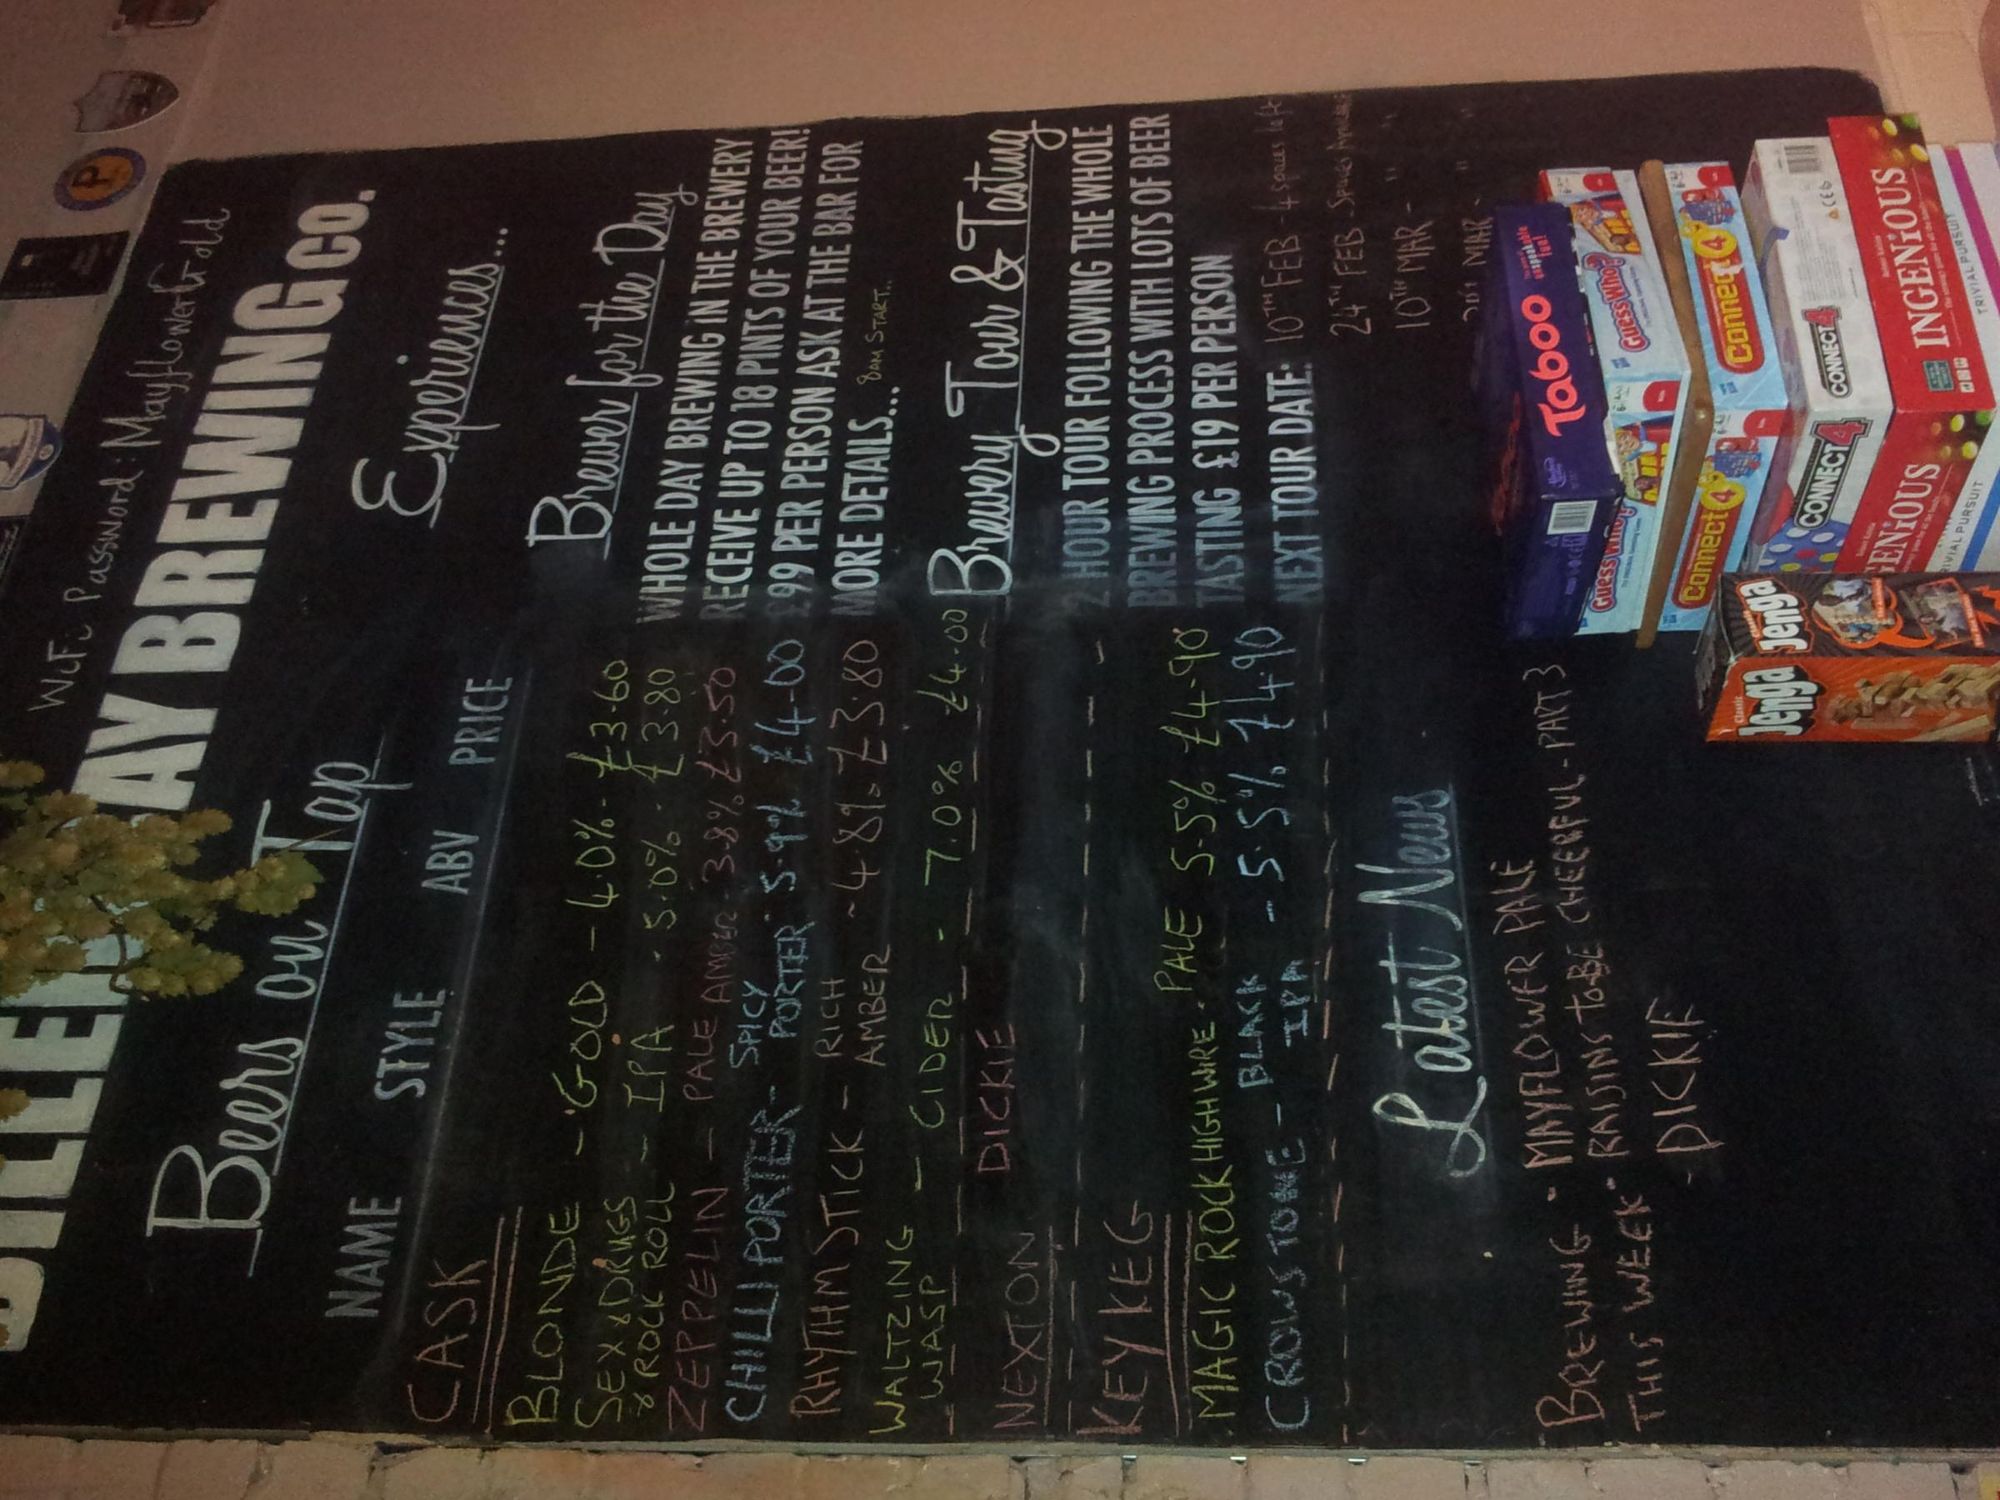 WiFi Password: MayflowerGold
AY BREWING CO.
Beers on Tap
NAME STYLE ABV PRICE
CASK
BLONDE - GOLD - 4.0% - £3.60
SEX & DRUGS
& ROCK ROLL - IPA - 5.0% - £3.80
ZEPPELIN - PALE AMBER - 3.8% £3.50
CHILLI PORTER - SPICY PORTER - 5.9% £4.00
RHYTHM STICK - RICH AMBER - 4.8% £3.80
WALTZING WASP - CIDER - 7.0% £4.00
NEXT ON DICKIE
KEYKEG
MAGIC ROCK HIGHWIRE - PALE 5.5% £4.90
CROWSTONE - BLACK IPA - 5.5% £4.90
Latest News
BREWING THIS WEEK
- MAYFLOWER PALE
- RAISINS TO BE CHEERFUL - PART 3
- DICKIE
Experiences...
Brewer for the Day
WHOLE DAY BREWING IN THE BREWERY
RECEIVE UP TO 18 PINTS OF YOUR BEER!
£99 PER PERSON ASK AT THE BAR FOR
MORE DETAILS... 8am START..
Brewery Tour & Tasting
2 HOUR TOUR FOLLOWING THE WHOLE
BREWING PROCESS WITH LOTS OF BEER
TASTING £19 PER PERSON
NEXT TOUR DATE: 10TH FEB - 4 spaces left
24TH FEB - Spaces Available
10TH MAR - " "
MAR - "
Taboo
unspeakable fun!
Guess Who?
Guess Who?
Connect 4
Connect 4
CONNECT 4
CONNECT 4
INGENIOUS
ENIOUS
TRIVIAL PURSUIT
VIAL PURSUIT
Classic
Jenga
Jenga